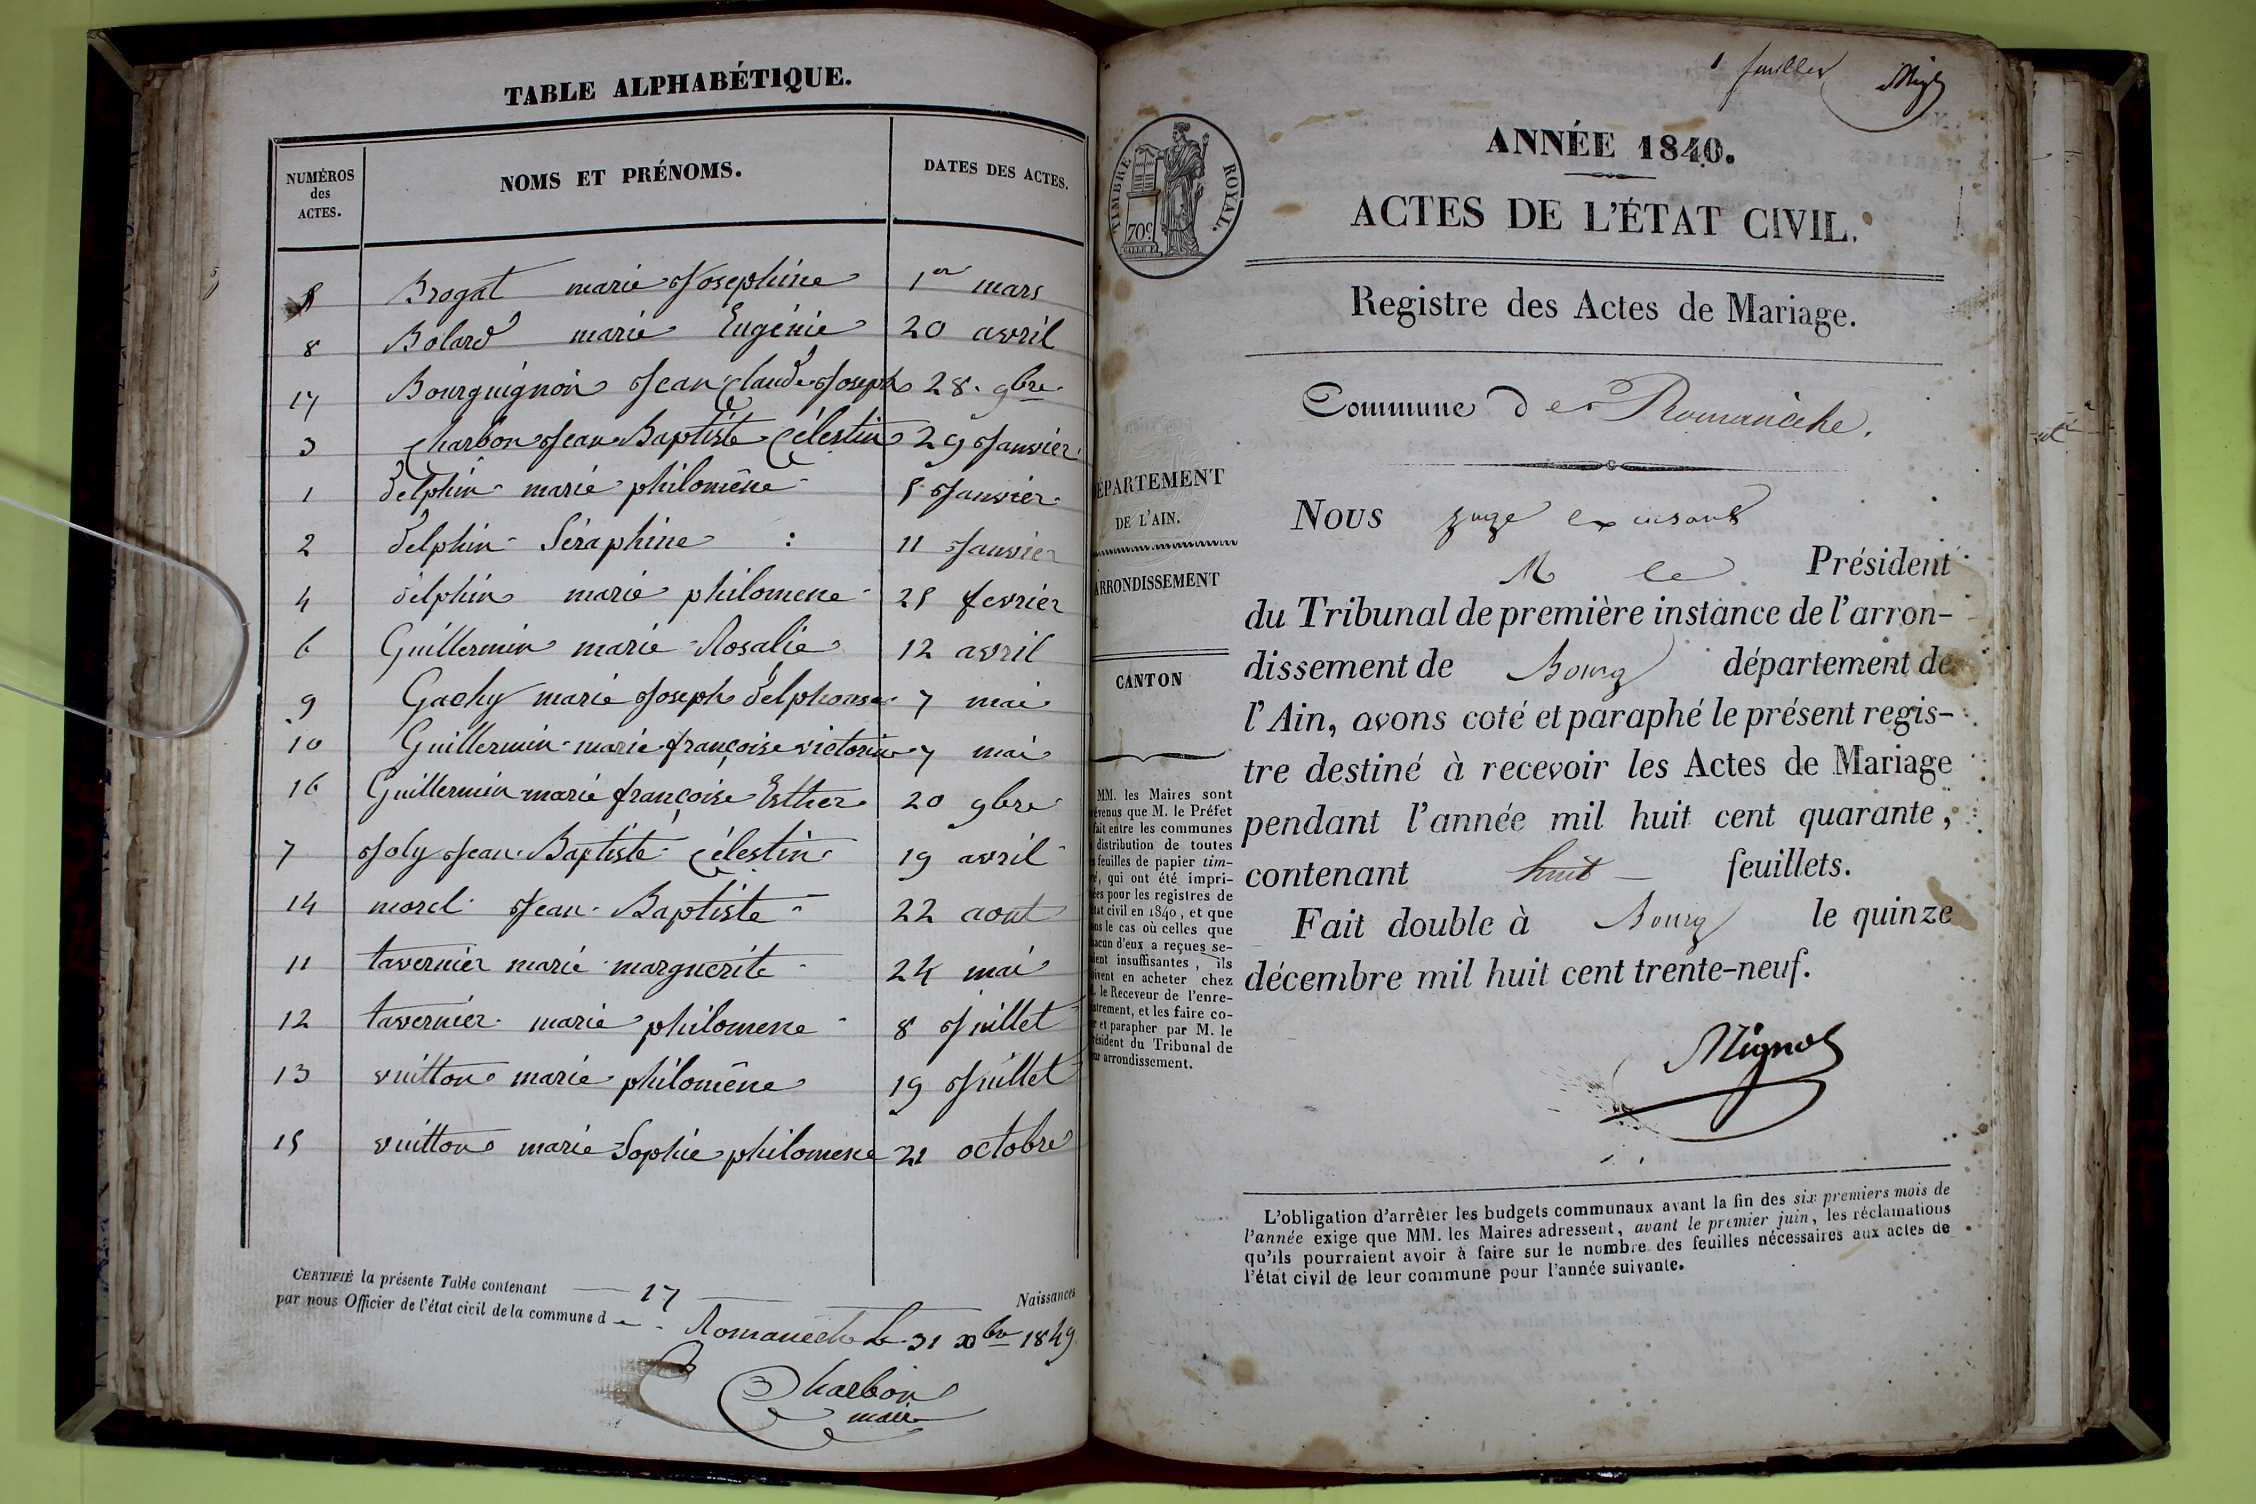 TABLE ALPHABÉTIQUE.
NUMÉROS des ACTES. NOMS ET PRÉNOMS. DATES DES ACTES.
5 Brogat marie Josephine 1er mars
8 Bolard marie Eugénie 20 avril
17 Bourguignon Jean Claude Joseph 28. 9bre
3 Charbon Jean Baptiste Célestin 29 Janvier
1 delphin marie philomène 5 Janvier
2 delphin Séraphine : 11 Janvier
4 delphin marie philomene 25 fevrier
6 Guillermin marie Rosalie 12 avril
9 Gachy marie Joseph delphonse 7 mai
10 Guillermin marie françoise victorine 7 mai
16 Guillermin marie françoise Esther 20 9bre
7 Joly Jean Baptiste Célestin 19 avril
14 morel Jean Baptiste 22 aout
11 tavernier marie marguerite 24 mai
12 tavernier marie philomene 8 Juillet
13 vuitton marie philomène 19 Juillet
15 vuitton marie Sophie philomene 21 octobre
CERTIFIÉ la présente Table contenant 17 Naissances
par nous Officier de l'état civil de la commune de
Romanèche Le 31 Xbre 1849
Charbon
maire
1 feuillet
TIMBRE ROYAL.
70c
ANNÉE 1840.
ACTES DE L'ÉTAT CIVIL.
Registre des Actes de Mariage.
Commune de Romanèche.
DÉPARTEMENT
DE L'AIN.
ARRONDISSEMENT
CANTON
MM. les Maires sont
prévenus que M. le Préfet
fait entre les communes
distribution de toutes
feuilles de papier tim-
qui ont été impri-
mées pour les registres de
état civil en 1840, et que
dans le cas où celles que
chacun d'eux a reçues se-
raient insuffisantes, ils
doivent en acheter chez
le Receveur de l'enre-
gistrement, et les faire co-
ter et parapher par M. le
Président du Tribunal de
leur arrondissement.
Nous juge
M le Président
du Tribunal de première instance de l'arron-
dissement de Bourg département de
l'Ain, avons coté et paraphé le présent regis-
tre destiné à recevoir les Actes de Mariage
pendant l'année mil huit cent quarante,
contenant huit feuillets.
Fait double à Bourg le quinze
décembre mil huit cent trente-neuf.
L'obligation d'arrêter les budgets communaux avant la fin des six premiers mois de
l'année exige que MM. les Maires adressent, avant le premier juin, les réclamations
qu'ils pourraient avoir à faire sur le nombre des feuilles nécessaires aux actes de
l'état civil de leur commune pour l'année suivante.